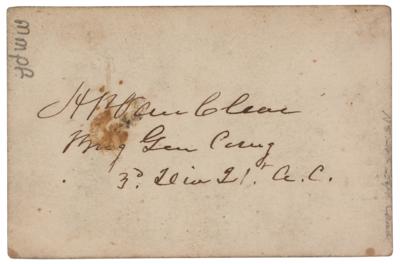 H P Van Cleve
Brig Gen Comg
3d Div 21st A. C.